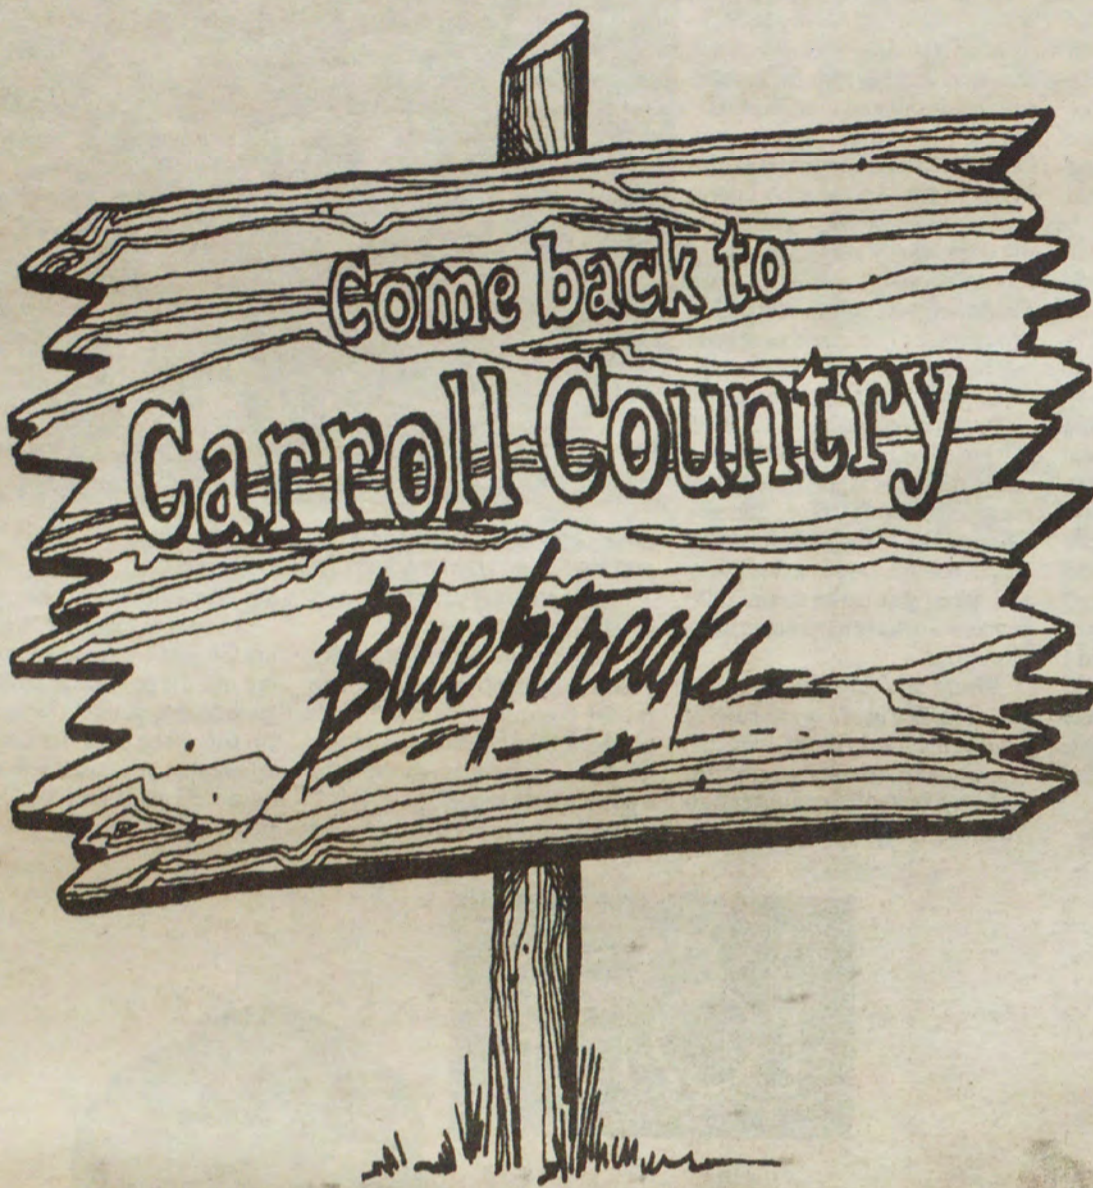 Come back to
Carroll Country
Blue Streaks